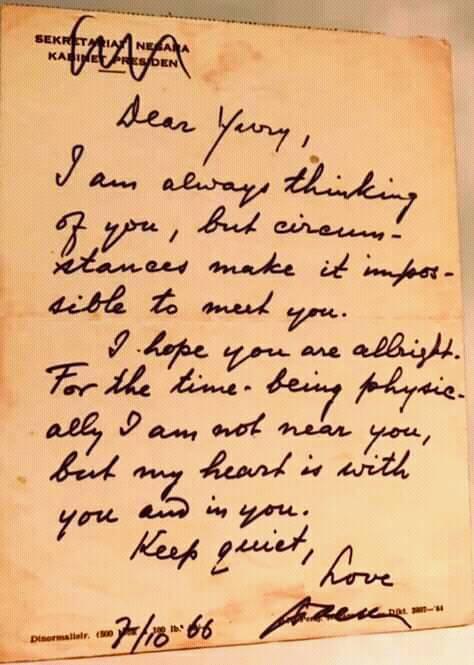 SEKRETARIAT NEGARA
KABINET PRESIDEN
Dear Yurry,
I am always thinking
of you, but circum-
stances make it impos-
sible to meet you.
I hope you are allright.
For the time-being physic-
ally I am not near you,
but my heart is with
you and in you.
Keep quiet,
Love
Dinormalisir. (500 100 lb.
Dikt. 2807—'64
7/10 66